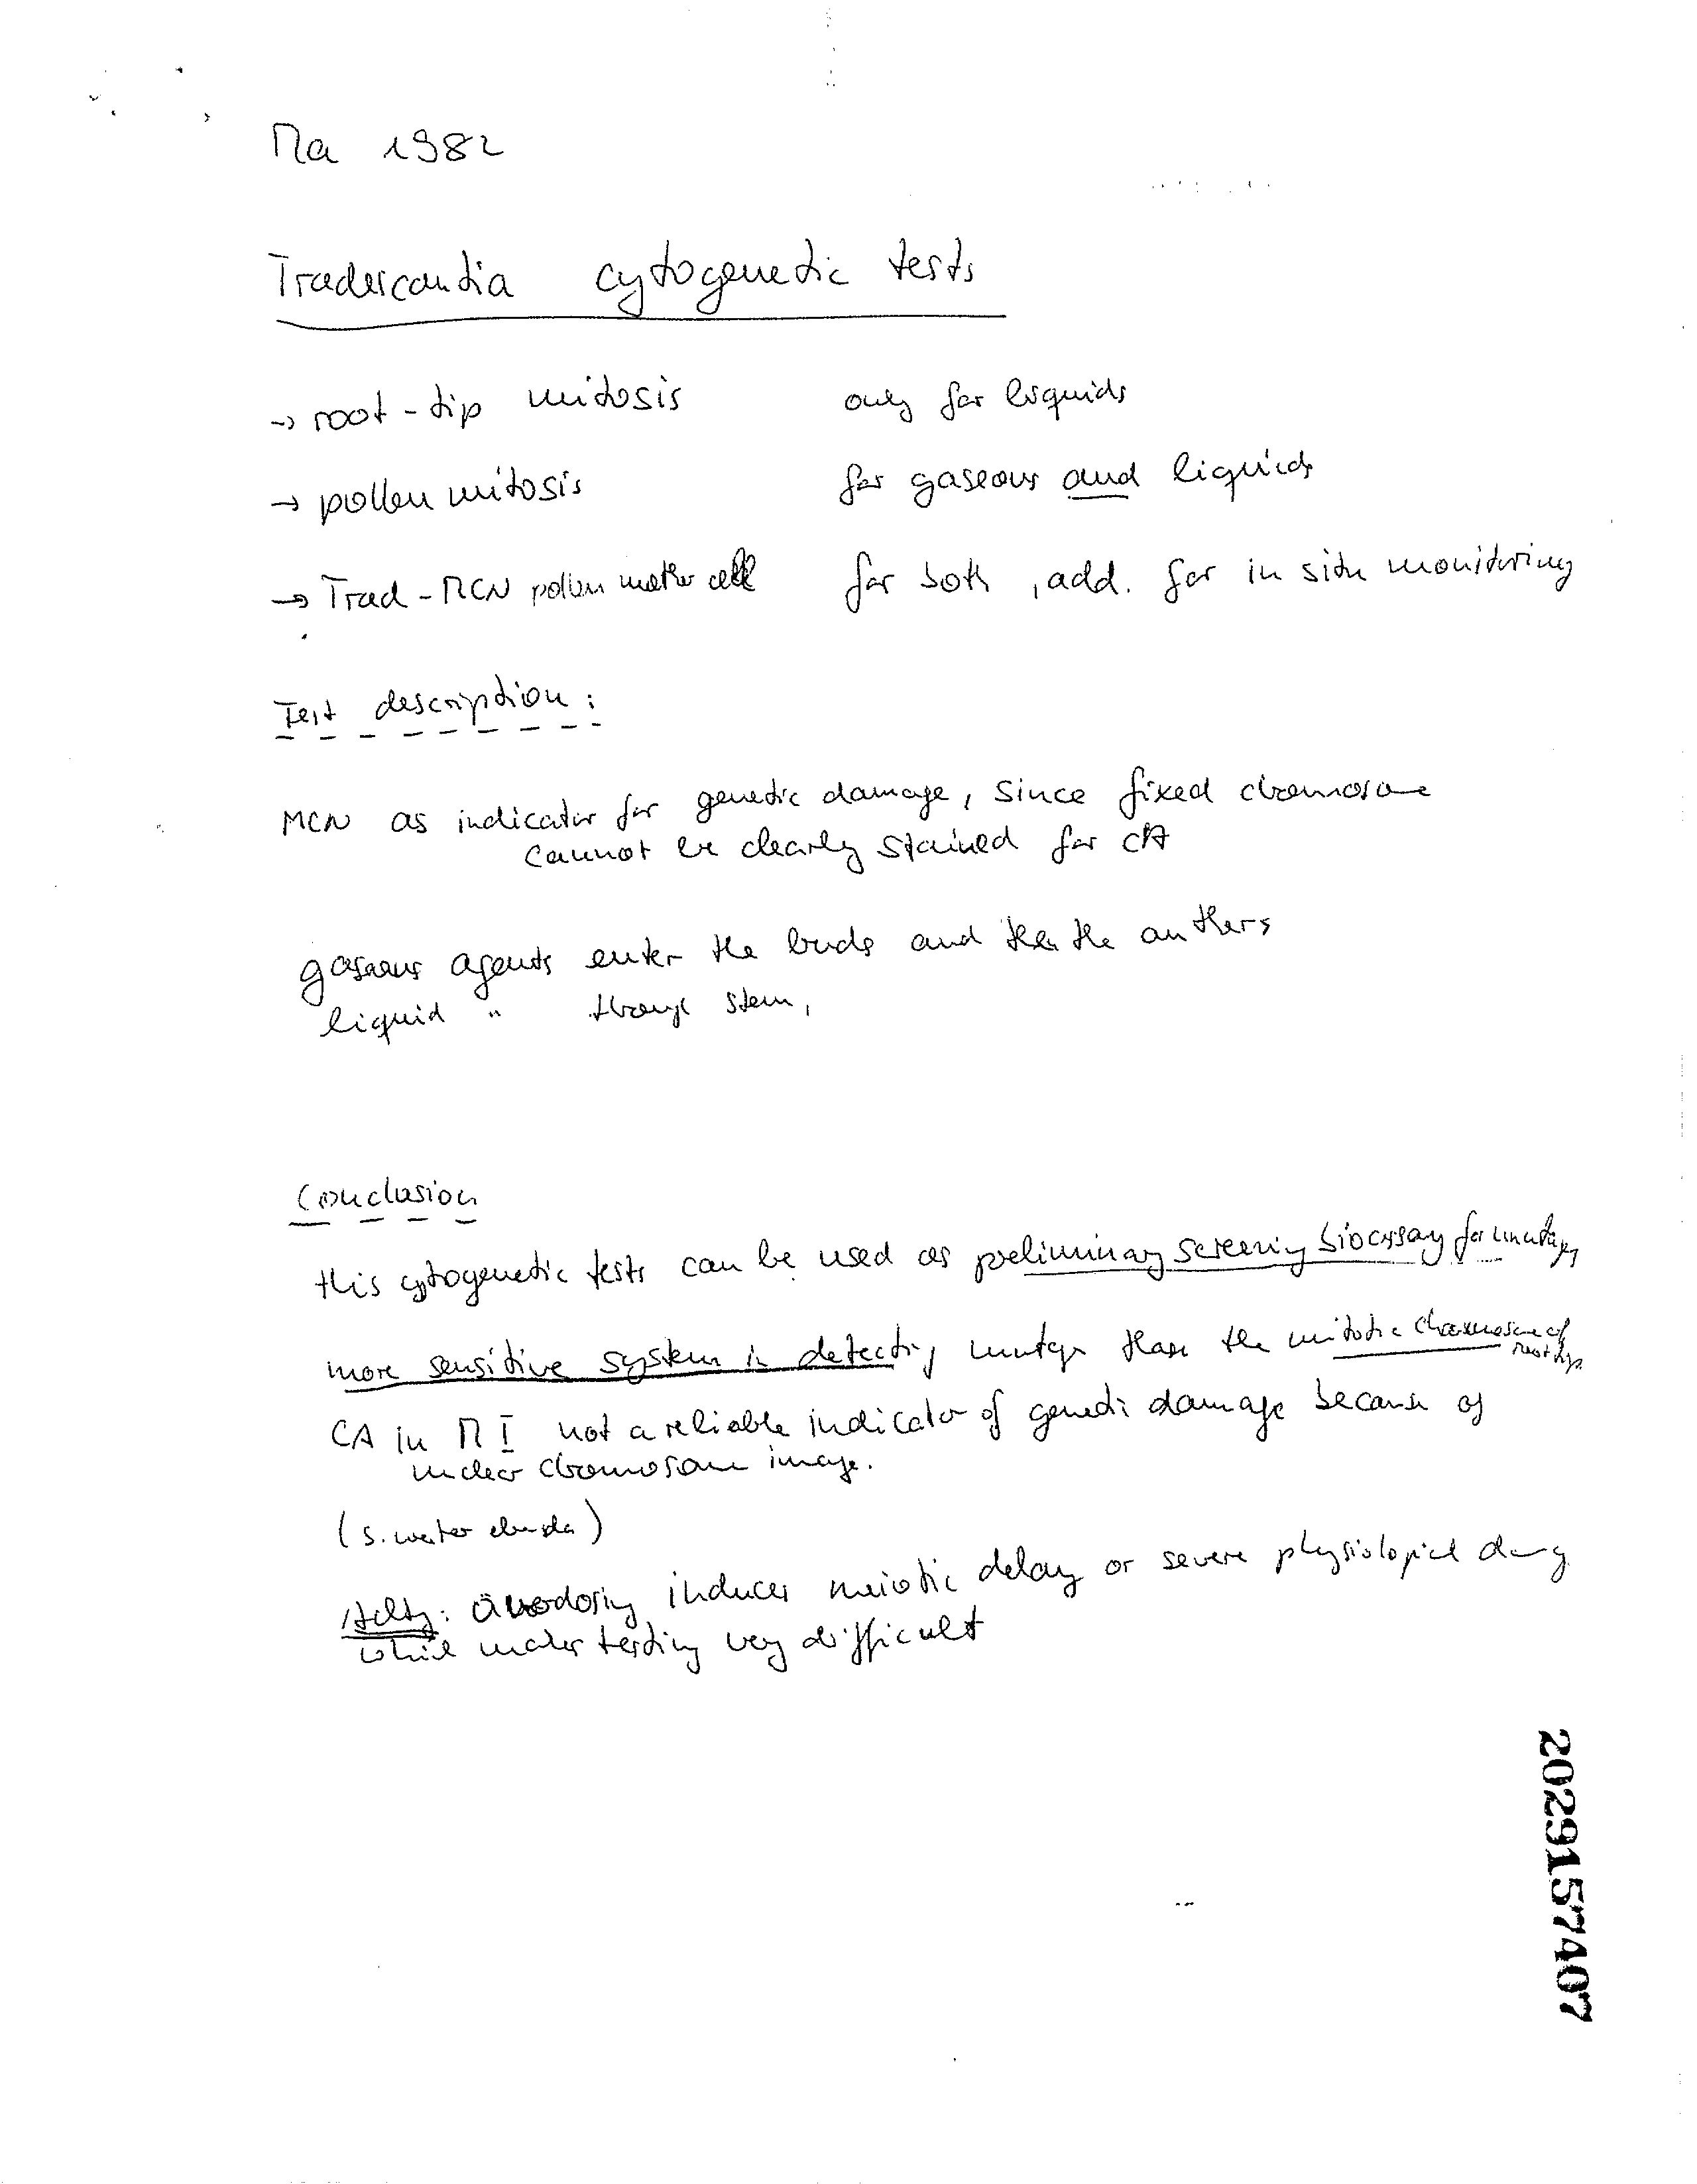 Ma 1982
Tradescantia cytogenetic tests
→ root-tip mitosis only for liquids
→ pollen mitosis for gaseous and liquids
→ Trad-MCN pollen mother cell for both, add. for in situ monitoring
Test description:
MCN as indicator for genetic damage, since fixed chromosome
cannot be clearly stained for CA
gaseous agents enter the buds and then the anthers
liquid " through stem,
Conclusion
this cytogenetic tests can be used as preliminary screening bioassay for mutagen
more sensitive system in detecting mutagen than the mitotic chromosome of
root tips
CA in M I not a reliable indicator of genetic damage because of
unclear chromosome image.
(s. weiter
: overdosing induces meiotic delay or severe physiological
while makes testing very difficult
2029157407